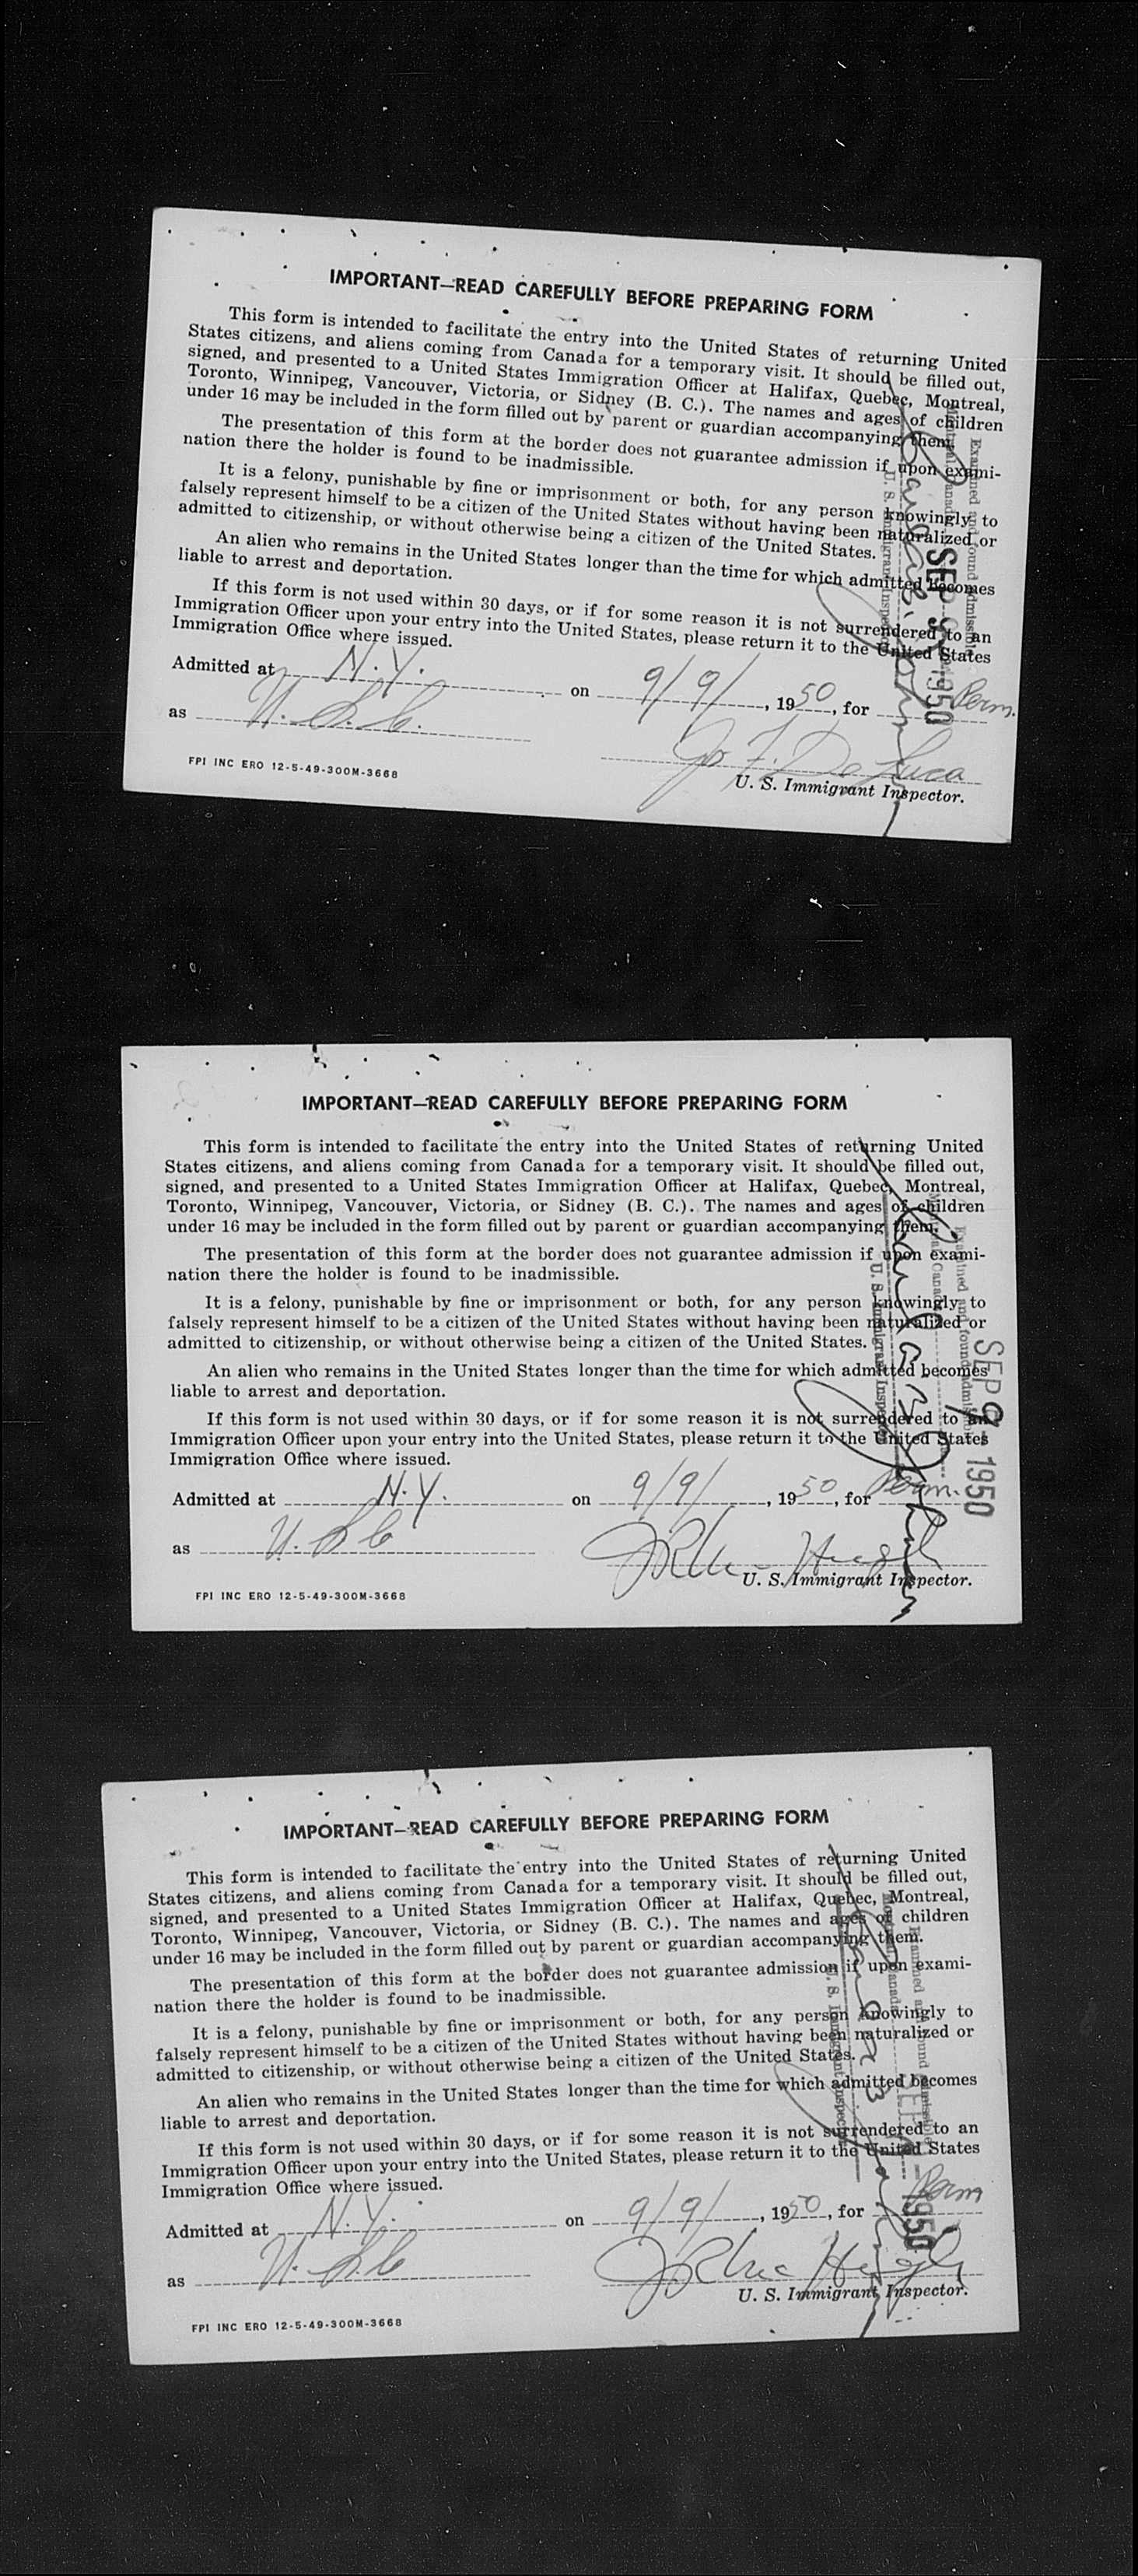 IMPORTANT—READ CAREFULLY BEFORE PREPARING FORM
This form is intended to facilitate the entry into the United States of returning United
States citizens, and aliens coming from Canada for a temporary visit. It should be filled out,
signed, and presented to a United States Immigration Officer at Halifax, Quebec, Montreal,
Toronto, Winnipeg, Vancouver, Victoria, or Sidney (B. C.). The names and ages of children
under 16 may be included in the form filled out by parent or guardian accompanying them.
The presentation of this form at the border does not guarantee admission if upon exami-
nation there the holder is found to be inadmissible.
It is a felony, punishable by fine or imprisonment or both, for any person knowingly to
falsely represent himself to be a citizen of the United States without having been naturalized or
admitted to citizenship, or without otherwise being a citizen of the United States.
An alien who remains in the United States longer than the time for which admitted becomes
liable to arrest and deportation.
If this form is not used within 30 days, or if for some reason it is not surrendered to an
Immigration Officer upon your entry into the United States, please return it to the United States
Immigration Office where issued.
Admitted at N.Y. on 9/9/, 1950, for Perm.
as U.S.C.
Jos F. De Luca
U. S. Immigrant Inspector.
FPI INC ERO 12-5-49-300M-3668
Examined and found admissible
Montreal Canada
SEP 9 1950
U. S. Immigrant Inspector
IMPORTANT—READ CAREFULLY BEFORE PREPARING FORM
This form is intended to facilitate the entry into the United States of returning United
States citizens, and aliens coming from Canada for a temporary visit. It should be filled out,
signed, and presented to a United States Immigration Officer at Halifax, Quebec, Montreal,
Toronto, Winnipeg, Vancouver, Victoria, or Sidney (B. C.). The names and ages of children
under 16 may be included in the form filled out by parent or guardian accompanying them.
The presentation of this form at the border does not guarantee admission if upon exami-
nation there the holder is found to be inadmissible.
It is a felony, punishable by fine or imprisonment or both, for any person knowingly to
falsely represent himself to be a citizen of the United States without having been naturalized or
admitted to citizenship, or without otherwise being a citizen of the United States.
An alien who remains in the United States longer than the time for which admitted becomes
liable to arrest and deportation.
If this form is not used within 30 days, or if for some reason it is not surrendered to an
Immigration Officer upon your entry into the United States, please return it to the United States
Immigration Office where issued.
Admitted at N.Y. on 9/9/, 1950, for Perm.
as U.S.C
U. S. Immigrant Inspector.
FPI INC ERO 12-5-49-300M-3668
Examined and found admissible
Montreal Canada
SEP 9 1950
U. S. Immigrant Inspector
IMPORTANT—READ CAREFULLY BEFORE PREPARING FORM
This form is intended to facilitate the entry into the United States of returning United
States citizens, and aliens coming from Canada for a temporary visit. It should be filled out,
signed, and presented to a United States Immigration Officer at Halifax, Quebec, Montreal,
Toronto, Winnipeg, Vancouver, Victoria, or Sidney (B. C.). The names and ages of children
under 16 may be included in the form filled out by parent or guardian accompanying them.
The presentation of this form at the border does not guarantee admission if upon exami-
nation there the holder is found to be inadmissible.
It is a felony, punishable by fine or imprisonment or both, for any person knowingly to
falsely represent himself to be a citizen of the United States without having been naturalized or
admitted to citizenship, or without otherwise being a citizen of the United States.
An alien who remains in the United States longer than the time for which admitted becomes
liable to arrest and deportation.
If this form is not used within 30 days, or if for some reason it is not surrendered to an
Immigration Officer upon your entry into the United States, please return it to the United States
Immigration Office where issued.
Admitted at N.Y. on 9/9/, 1950, for Perm
as U.S.C
U. S. Immigrant Inspector.
FPI INC ERO 12-5-49-300M-3668
Examined and found admissible
Montreal Canada
SEP 9 1950
U. S. Immigrant Inspector